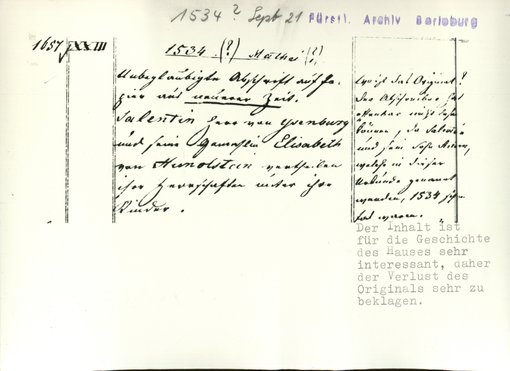 1534 ? Sept 21 Fürstl. Archiv Berleburg
1657 XXIII
1534 (?) Mathei (?)
Unbeglaubigte Abschrift auf Pa-
pier aus neuerer Zeit.
Salentin Herr von Ysenburg
und seine Gemahlin Elisabeth
von Hunolstein vertheilen
ihre Herrschaften unter ihre
Kinder.
Wo ist das Original?
Der Abschreiber hat
offenbar nicht lesen
können, da Salentin
und sein Sohn Anton,
welche in dieser
Urkunde genannt
werden, 1534 schon
tod waren.
Der Inhalt ist
für die Geschichte
des Hauses sehr
interessant, daher
der Verlust des
Originals sehr zu
beklagen.